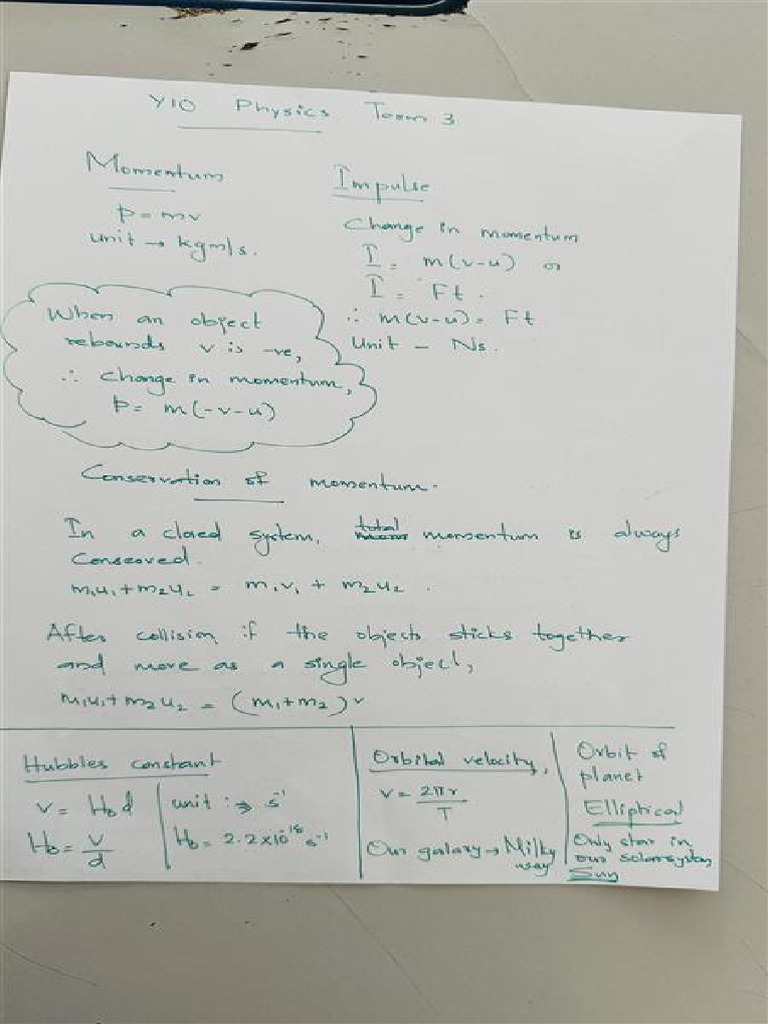 Y10 Physics Term 3
Momentum
p = mv
unit → kgm/s.
Impulse
Change in momentum
I = m(v-u) or
I = Ft.
∴ m(v-u) = Ft
Unit - Ns.
When an object
rebounds v is -ve,
∴ change in momentum,
p = m(-v-u)
Conservation of momentum.
In a closed system, total momentum is always
conserved.
m₁u₁+m₂u₂ = m₁v₁ + m₂u₂.
After collision, if the objects sticks together
and move as a single object,
m₁u₁+m₂u₂ = (m₁+m₂)v
Hubbles constant
v = H₀d
H₀ = v/d
unit :⇒ s⁻¹
H₀ = 2.2×10⁻¹⁸ s⁻¹
Orbital velocity,
v = 2πr/T
Our galaxy → Milky
way
Orbit of
planet
Elliptical
Only star in
our solar system
Sun